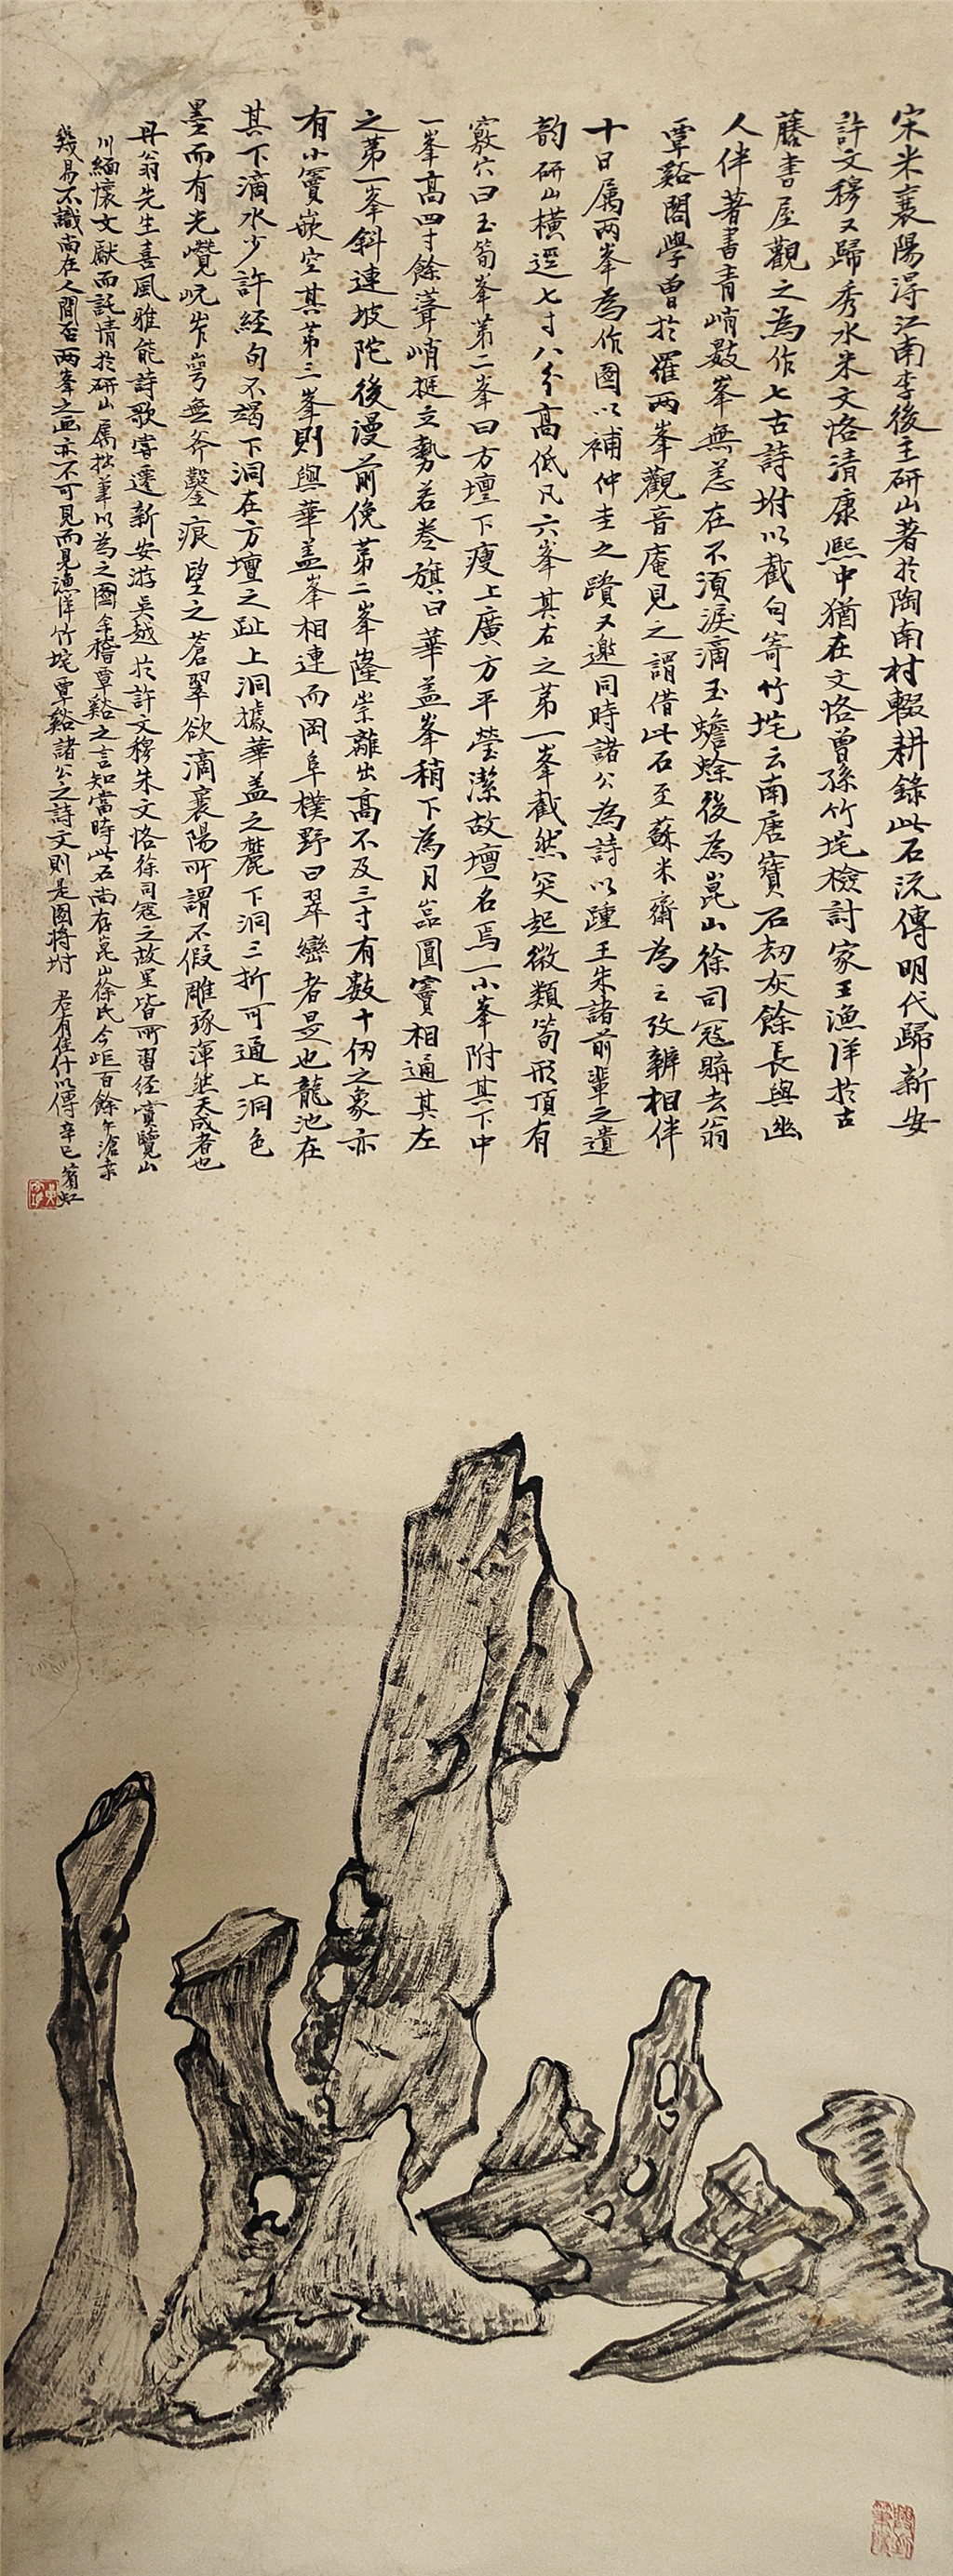 宋米襄陽得江南李後主研山著於陶南村輟耕錄此石流傳明代歸新安
許文穆又歸秀水朱文恪清康熙中猶在文恪曾孫竹垞檢討家王漁洋於古
藤書屋觀之為作七古詩坿以截句寄竹垞云南唐寶石劫灰餘長與幽
人伴著書青峭數峯無恙在不須淚滴玉蟾蜍後為崑山徐司寇購去翁
覃谿閣學曾於羅兩峯觀音庵見之謂借此石至蘇米齋為之攷辨相伴
十日属兩峯為作圖以補仲圭之蹟又邀同時諸公為詩以踵王朱諸前輩之遺
韵研山橫逕七寸八分高低凡六峯其右之苐一峯截然突起微類筍形頂有
竅穴曰玉筍峯苐二峯曰方壇下瘦上廣方平瑩潔故壇名焉一小峯附其下中
一峯高四寸餘聳峭挺立勢若卷旗曰華盖峯稍下為月嵓圓竇相通其左
之苐一峯斜連坡陀後漫前俛苐二峯隆崇離出高不及三寸有數十仞之象亦
有小竇嵌空其苐三峯則與華盖峯相連而岡阜樸野曰翠巒者是也龍池在
其下滴水少許經旬不竭下洞在方壇之趾上洞據華盖之麓下洞三折可通上洞色
墨而有光巑岏岝崿無斧鑿痕望之蒼翠欲滴襄陽所謂不假雕琢渾然天成者也
丹翁先生喜風雅能詩歌嘗遷新安游吳越於許文穆朱文恪徐司寇之故里皆所習經賞覽山
川緬懷文獻而託情於研山属拙筆以為之圖余稽覃谿之言知當時此石尚存崑山徐氏今距百餘年滄桑
幾易不識尚在人間否兩峯之畫亦不可見而見漁洋竹垞覃谿諸公之詩文則是圖將坿 君有佳什以傳辛巳賓虹